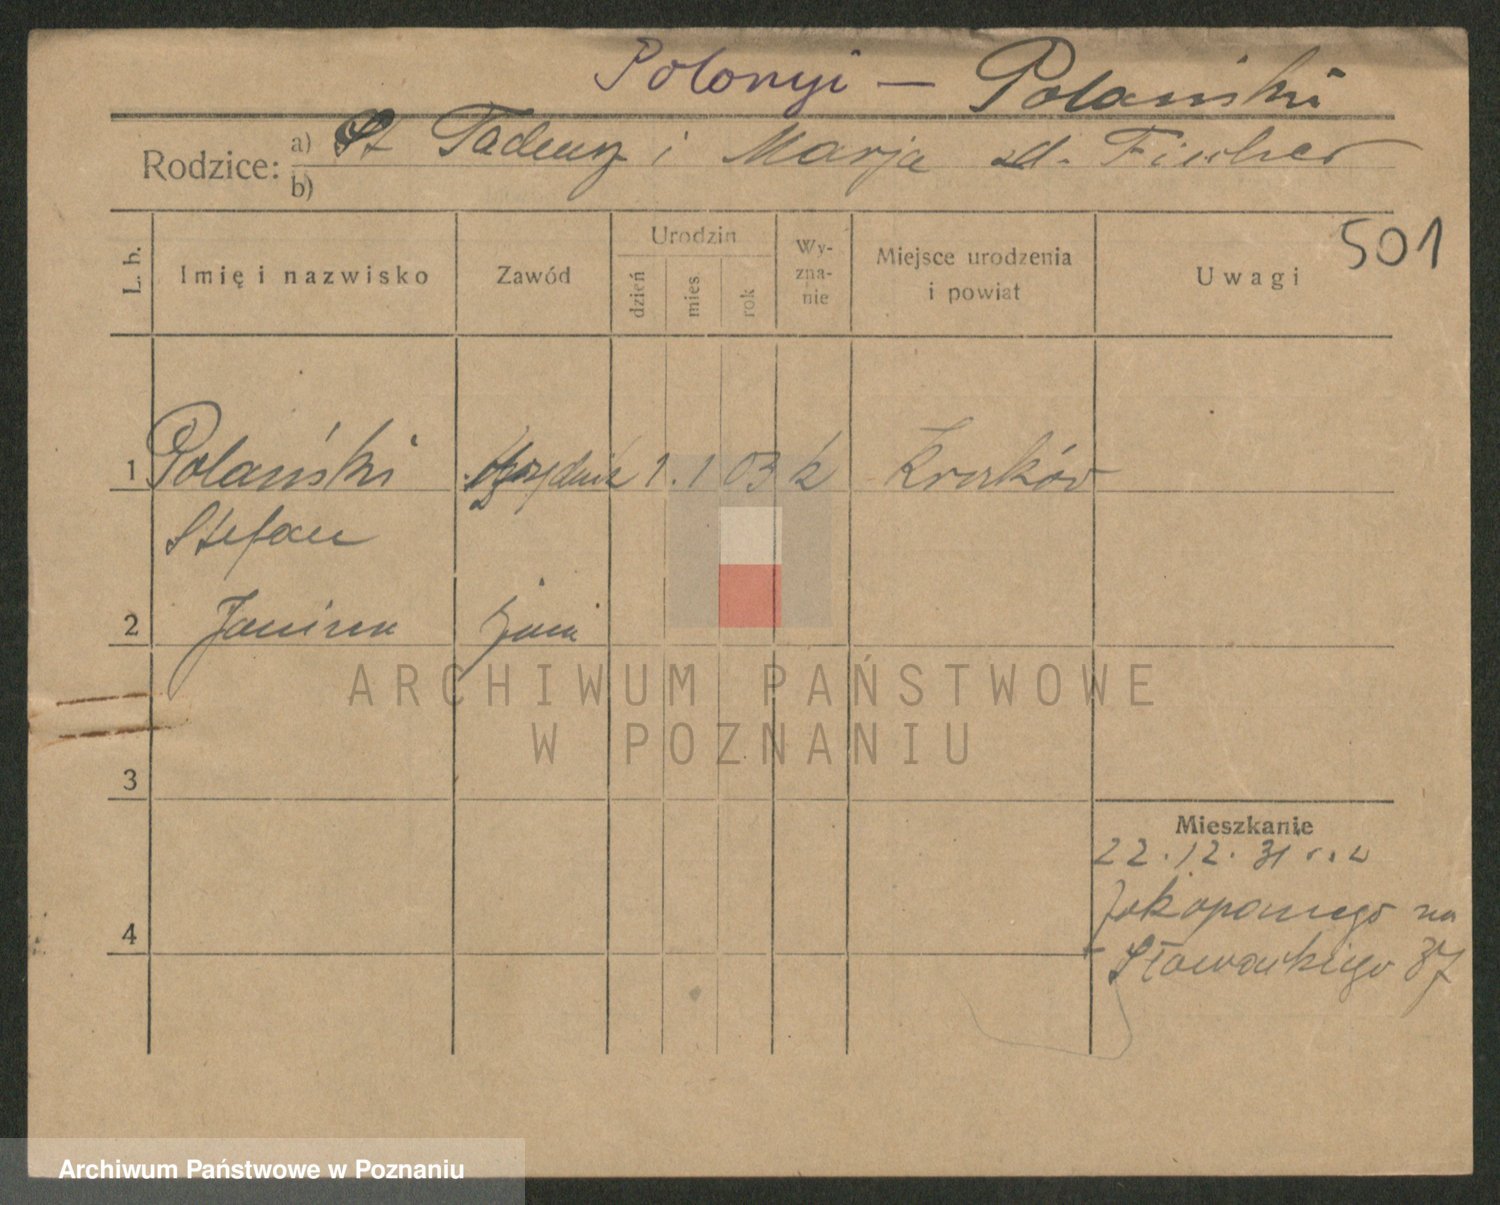 Polonyi — Polański
Rodzice: a) St Tadeusz i Marja zd. Fischer
b)
501
L. b.
Imię i nazwisko
Zawód
Urodzin
dzień
mies
rok
Wy-
zna-
nie
Miejsce urodzenia
i powiat
Uwagi
1 Polański Urzędnik 1. 1 03 k Kraków
Stefan
2 Janina żona
ARCHIWUM PAŃSTWOWE
W POZNANIU
3
Mieszkanie
22.12.31 r. z
Zakopanego na
4
Słowackiego 37
Archiwum Państwowe w Poznaniu